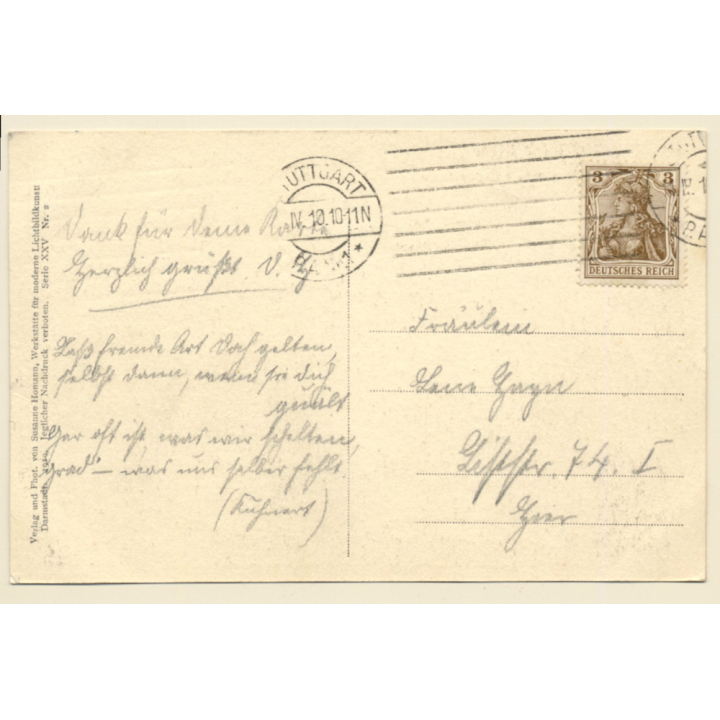 Verlag und Phot. von Susanne Homann, Werkstätte für moderne Lichtbildkunst
Darmstadt. Jeglicher Nachdruck verboten. Serie XXV Nr. 2
Dank für Deine Karte
Herzlich grüßt D.
Laß fremde Art doch gelten,
selbst dann, wenn sie dich
quält
Gar oft ist, was wir schelten,
Grad' – was uns selber fehlt.
(Kuhnert)
STUTTGART
IV. 10. 10-11N
3 3
DEUTSCHES REICH
Fräulein
Lene
74. I
Hier